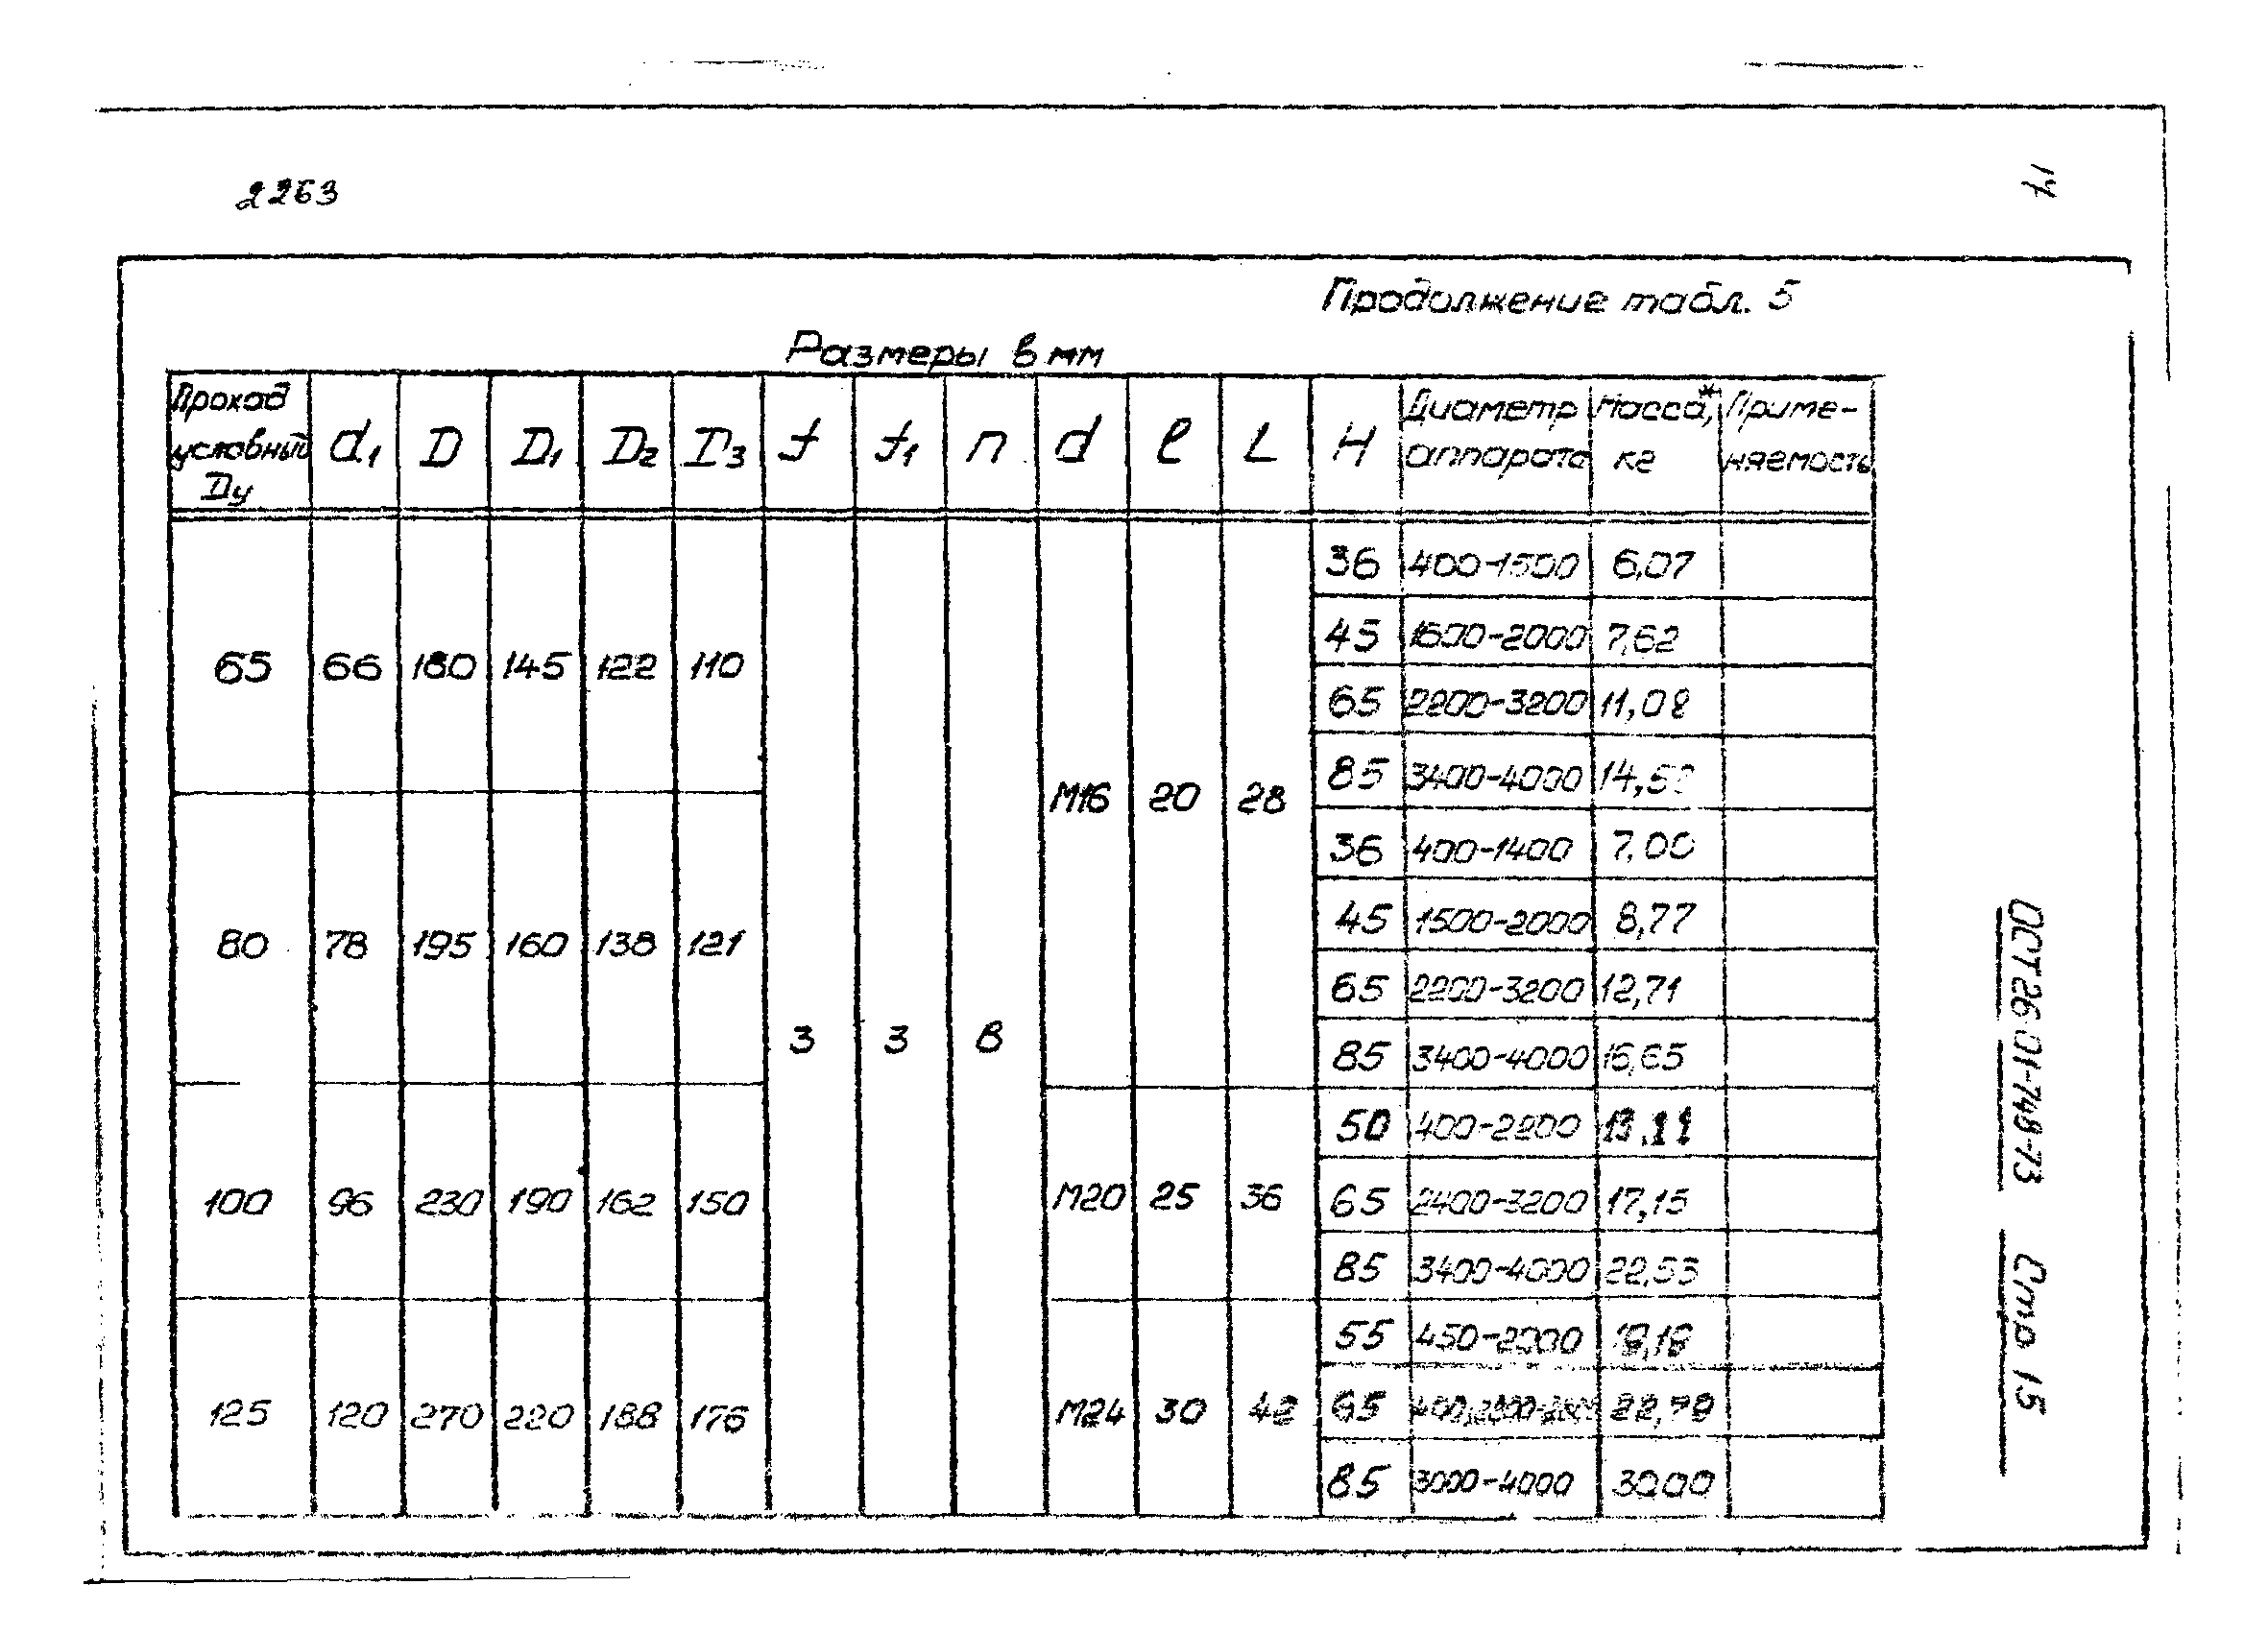 2263
17
Продолжение табл. 5
Размеры в мм
Проход условный Dу d1 D D1 D2 D3 f f1 n d l L H Диаметр аппарата Масса*, кг Применяемость
65 66 180 145 122 110 3 3 8 M16 20 28 36 400-1500 6,07
45 1600-2000 7,62
65 2200-3200 11,08
85 3400-4000
80 78 195 160 138 121 36 400-1400 7,00
45 1500-2000 8,77
65 2200-3200 12,71
85 3400-4000 16,65
100 96 230 190 162 150 M20 25 36 50 400-2200
65 2400-3200 17,15
85 3400-4000 22,53
125 120 270 220 188 176 M24 30 42 55 450-2000 18,18
65
85 3000-4000 30,00
ОСТ 26-01-748-73 Стр 15